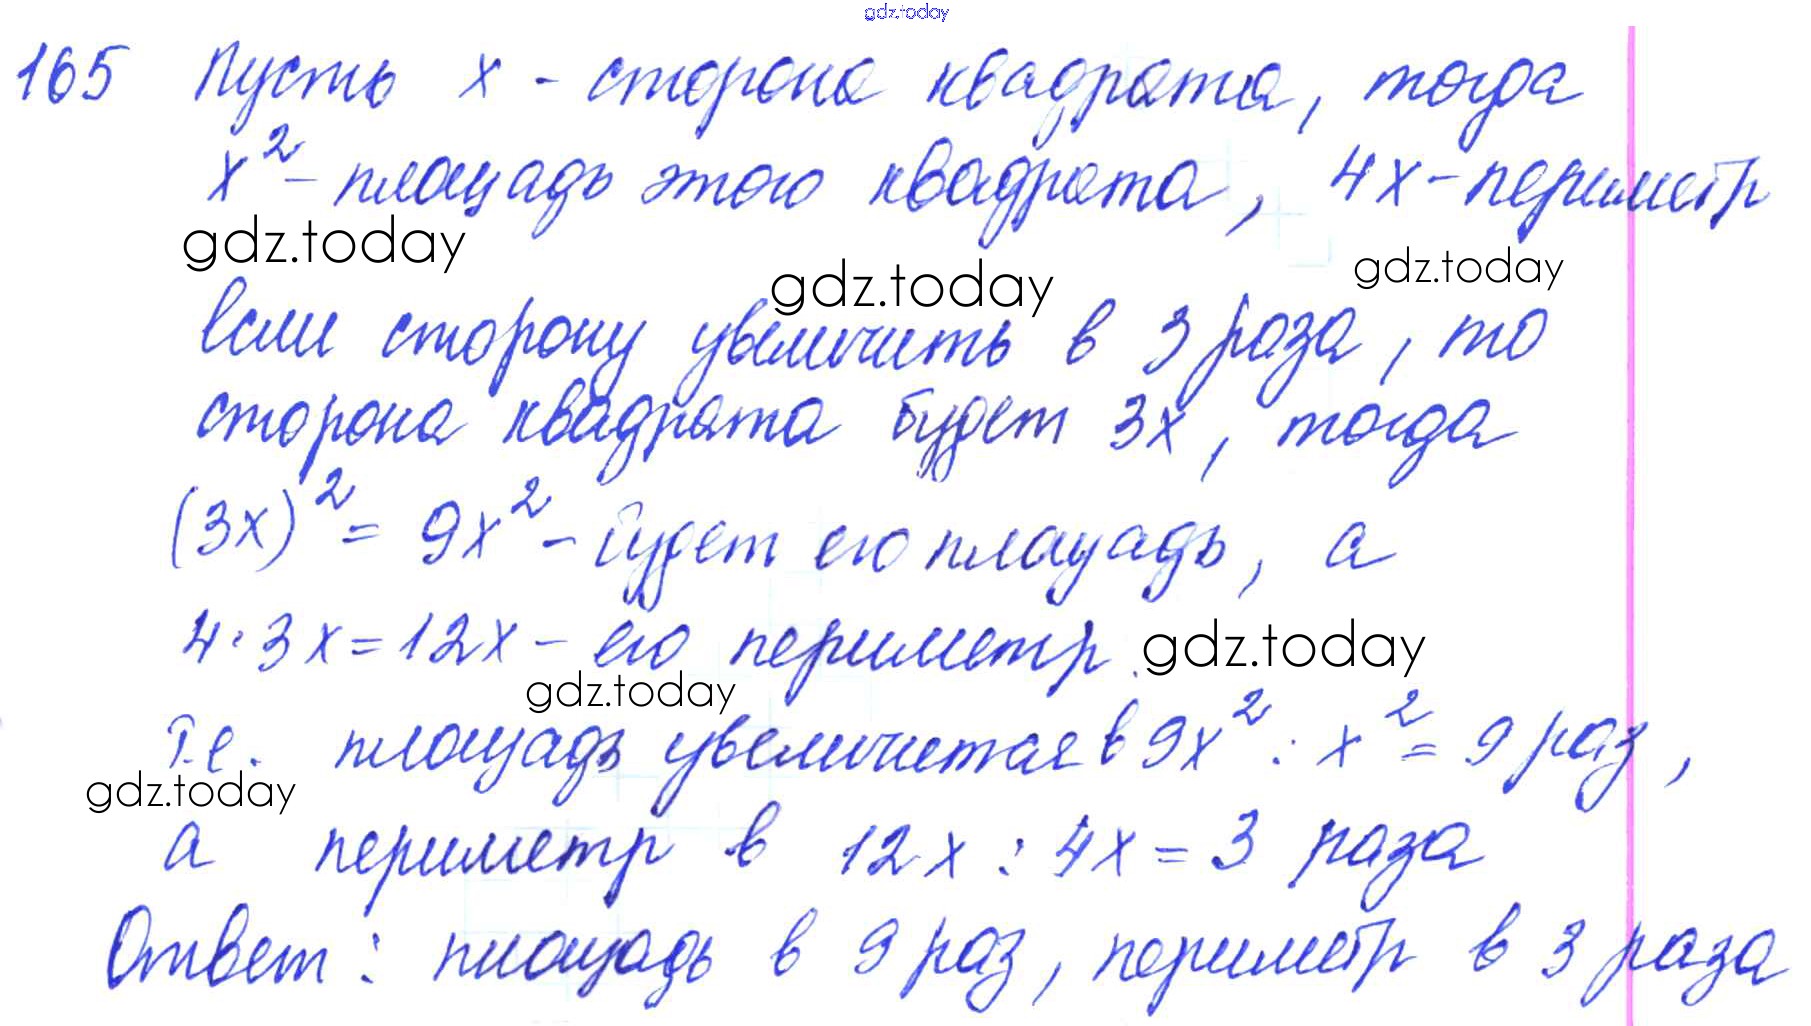 gdz.today
165 Пусть x - сторона квадрата, тогда
x² - площадь этого квадрата, 4x - периметр
gdz.today gdz.today gdz.today
Если сторону увеличить в 3 раза, то
сторона квадрата будет 3x, тогда
(3x)² = 9x² - будет его площадь, а
4·3x = 12x - его периметр. gdz.today
gdz.today
Т.е. площадь увеличится в 9x² : x² = 9 раз,
gdz.today
а периметр в 12x : 4x = 3 раза
Ответ: площадь в 9 раз, периметр в 3 раза